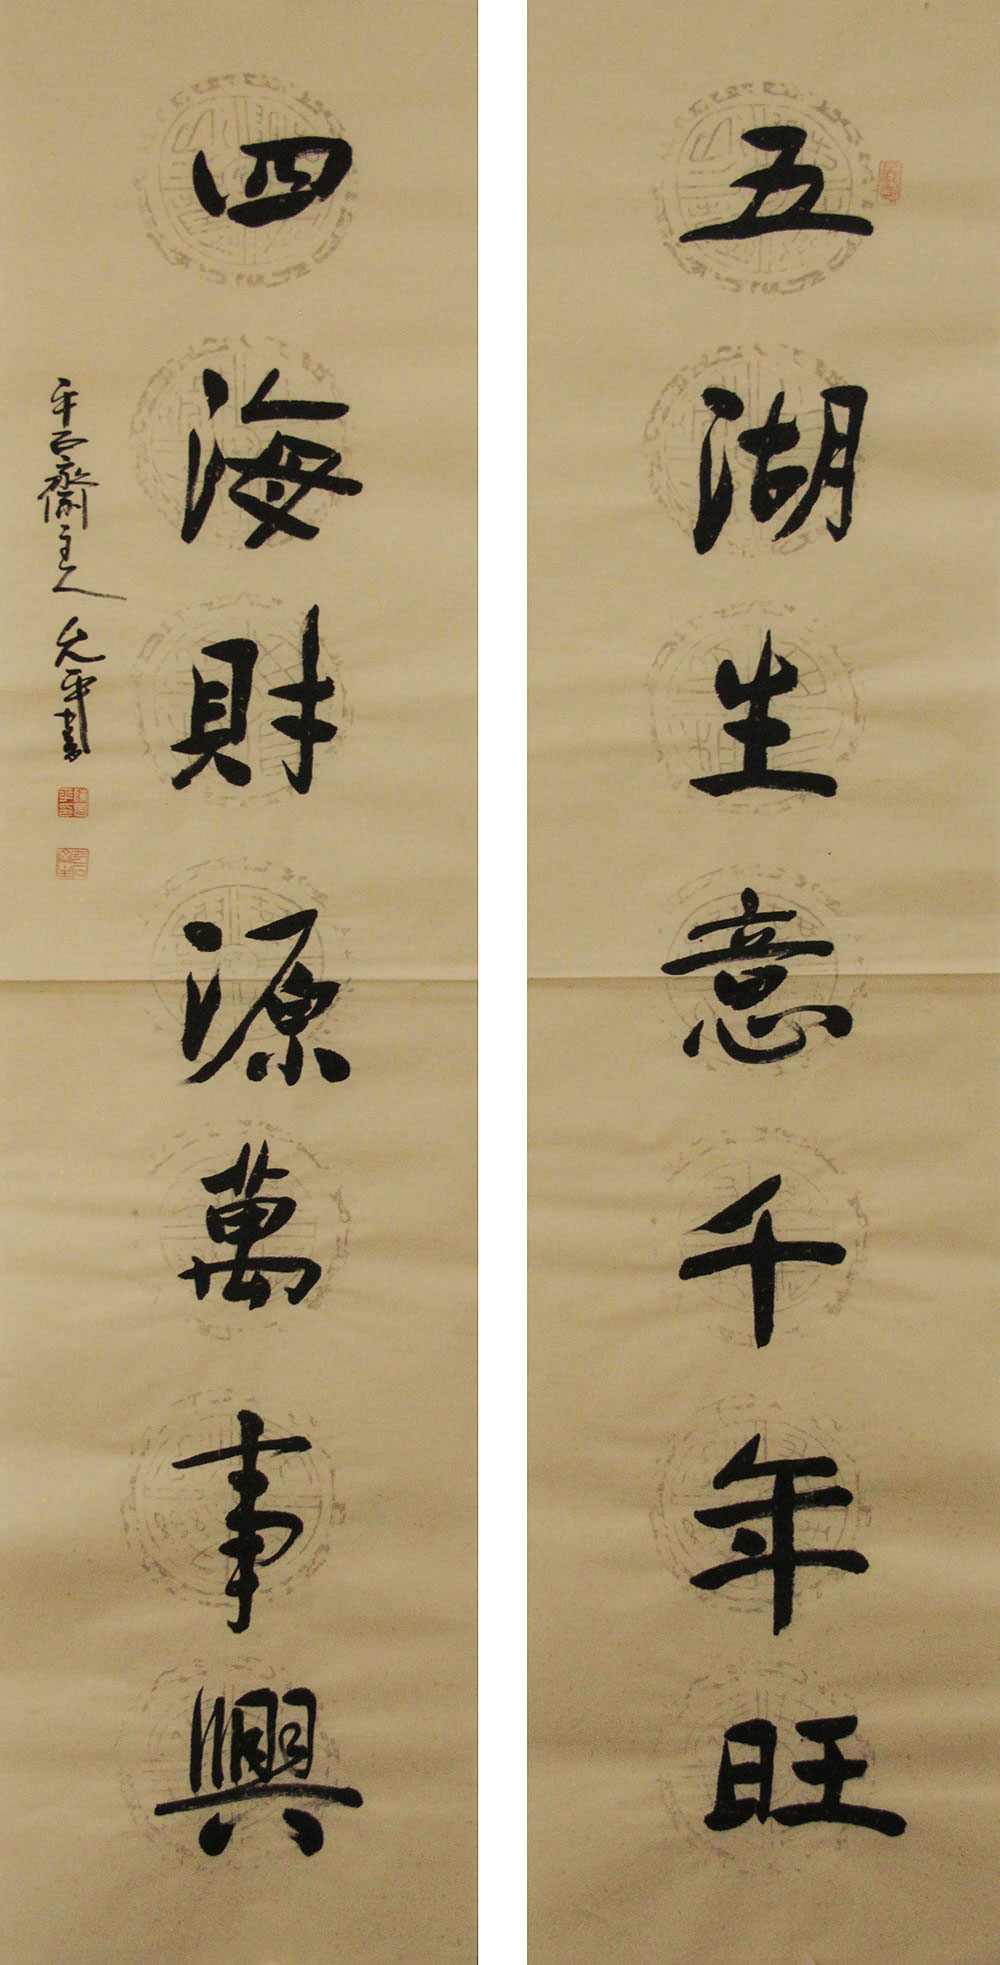 五湖生意千年旺
四海財源萬事興
齋主人 允平書